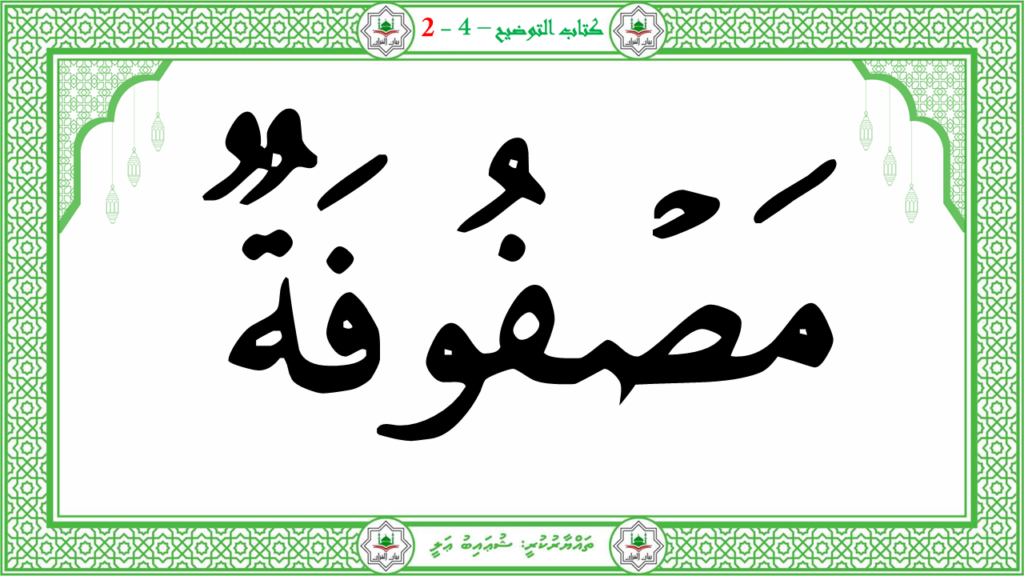 كتاب التوضيح – 4 - 2
مَصْفُوفَةٌ
ތައްޔާރުކުރީ: ޝުޢައިބު ޢަލީ